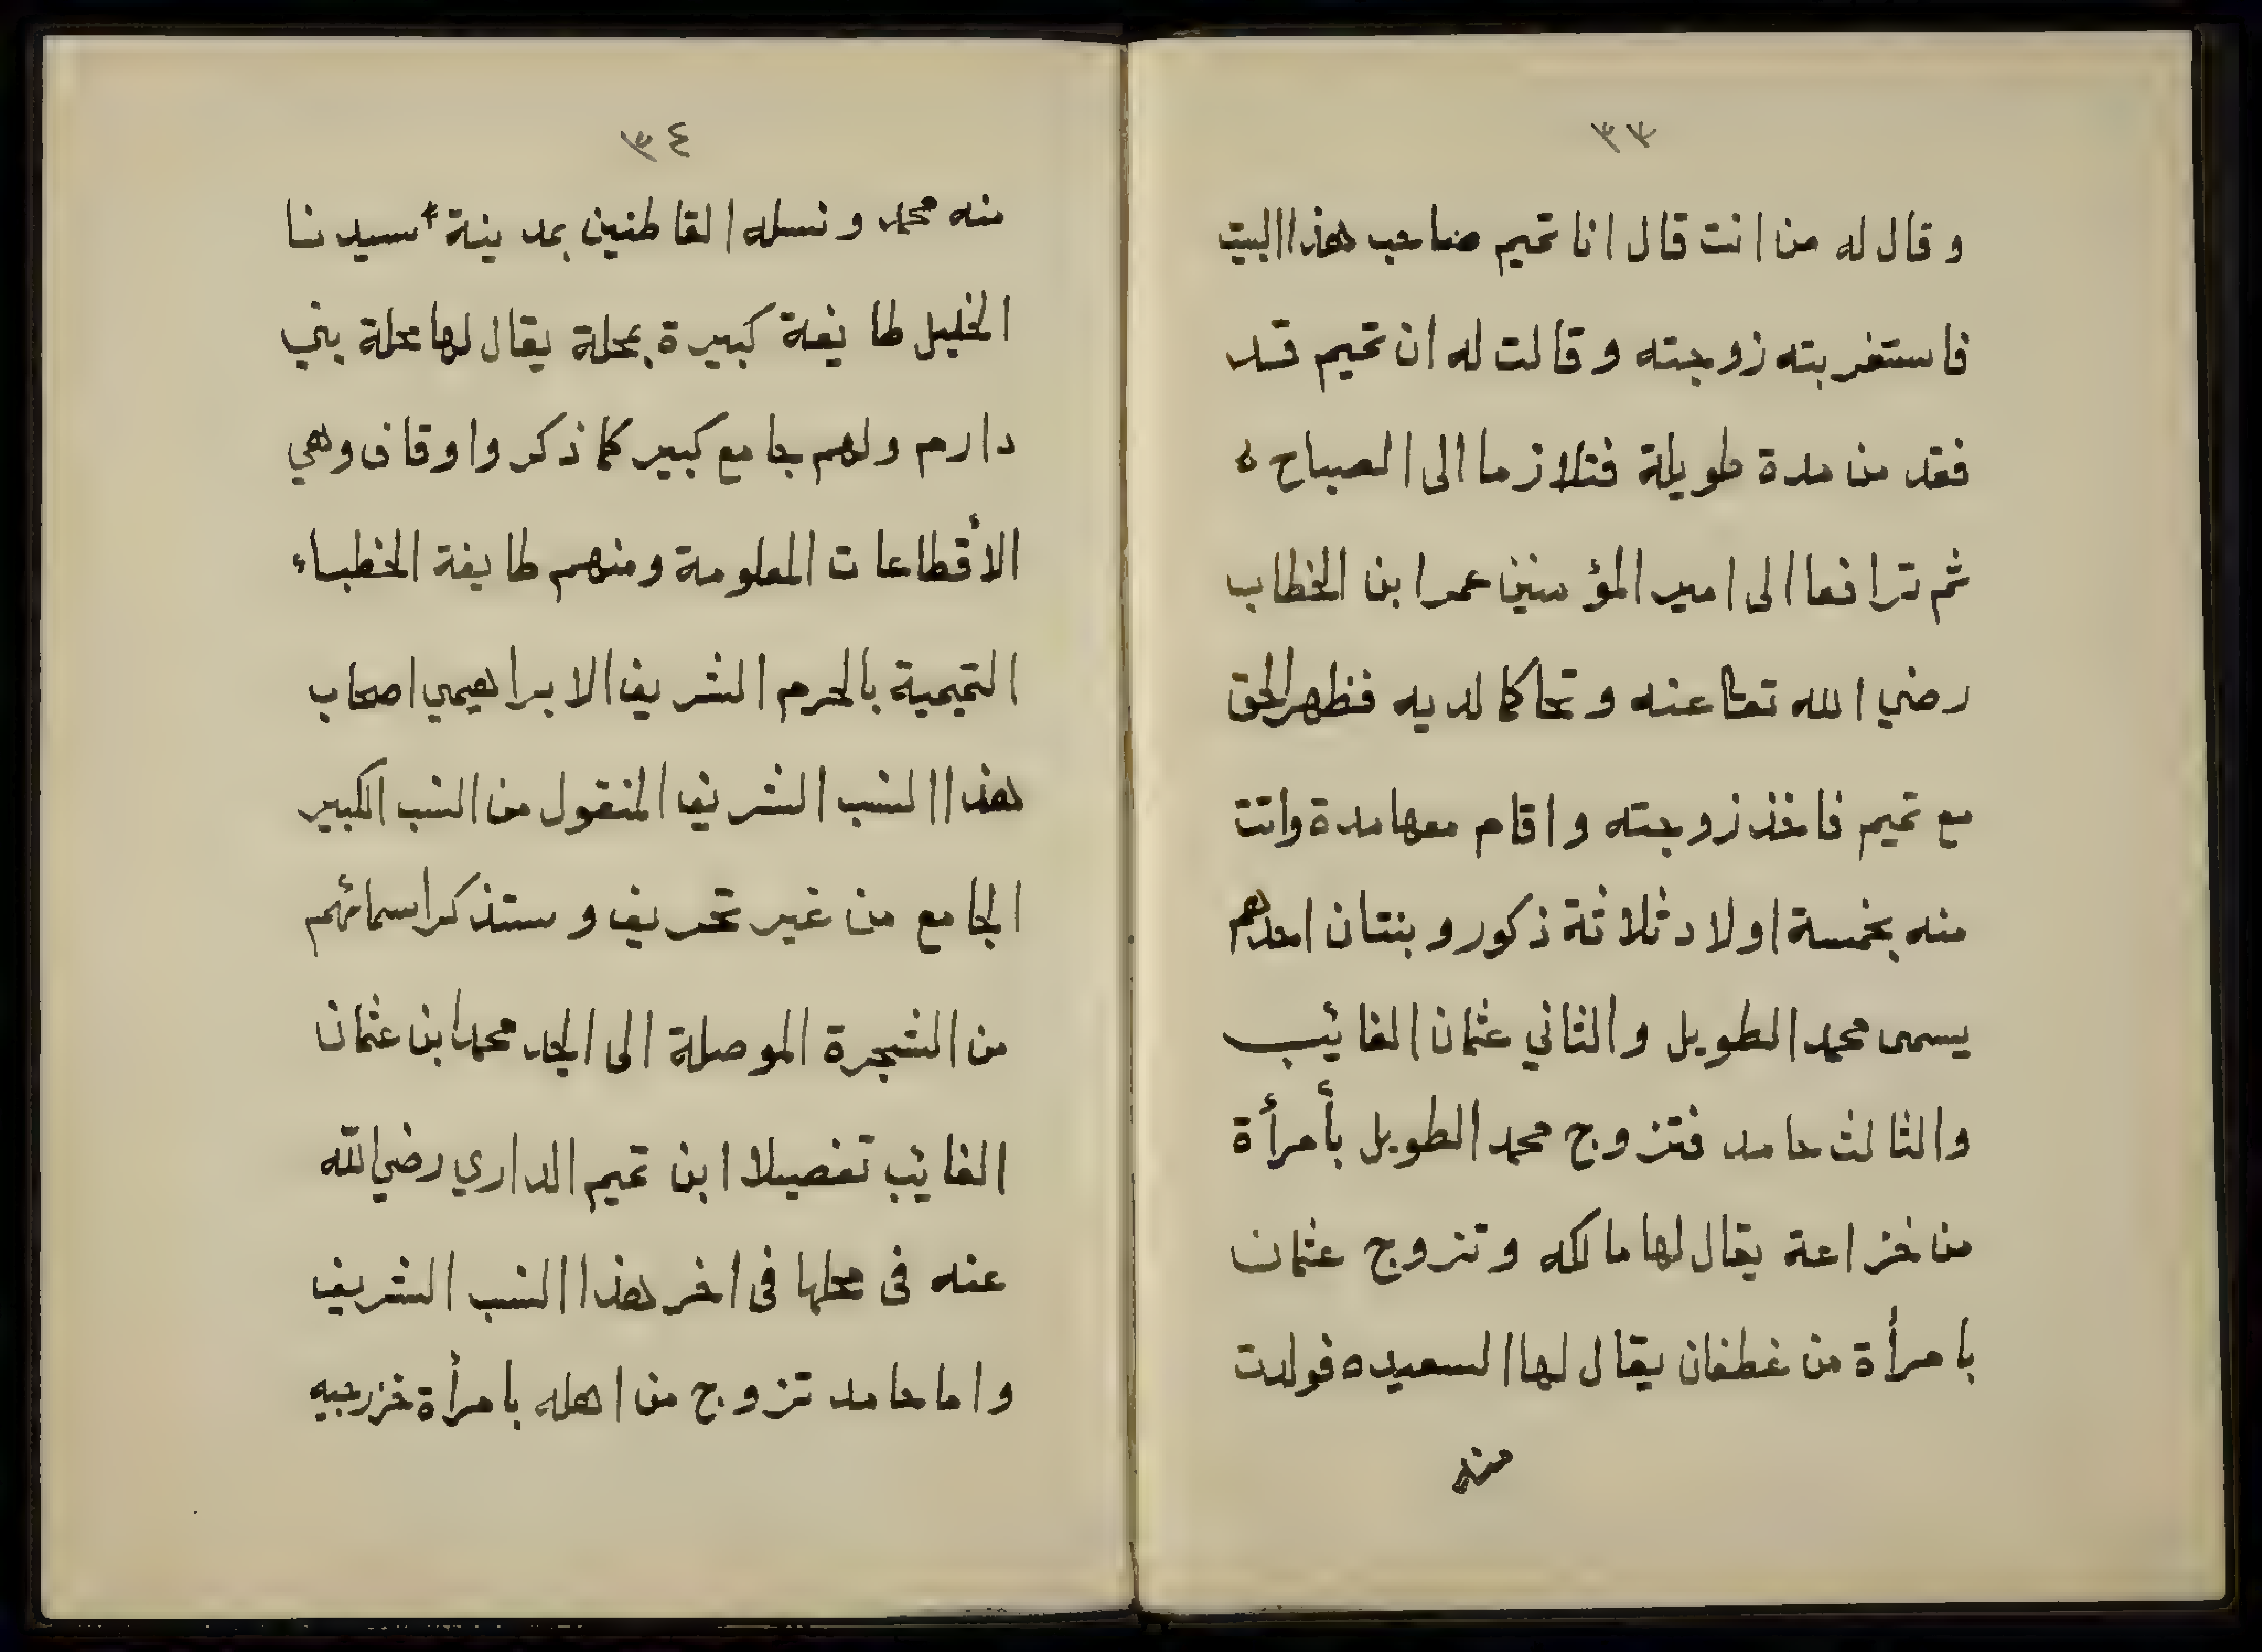 ٣٣
وقال له من انت قال انا تميم صاحب هذا البيت
فاستغربته زوجته وقالت له ان تميم قد
فقد من مدة طويلة فتلازما الى الصباح ه
ثم ترافعا الى امير المؤمنين عمر ابن الخطاب
رضي الله تعا عنه وتحاكما لديه فظهر الحق
مع تميم فاخذ زوجته واقام معها مدة واتت
منه بخمسة اولاد ثلاثة ذكور وبنتان احدهم
يسمى محمد الطويل والثاني عثمان الغايب
والثالث حامد فتزوج محمد الطويل بأمرأة
من خزاعة يقال لها مالكه وتزوج عثمان
بامرأة من غطفان يقال لها السعيده فولدت
منه
٣٤
منه محمد ونسله القاطنين بمدينة سيدنا
الخليل طايفة كبيرة بمحلة يقال لها محلة بني
دارم ولهم جامع كبير كما ذكر واوقاف وهي
الأقطاعات المعلومة ومنهم طايفة الخطباء
التميمية بالحرم الشريف الابراهيمي اصحاب
هذا النسب الشريف المنقول من النسب الكبير
الجامع من غير تحريف وستذكر اسمائهم
من الشجرة الموصلة الى الجد محمد ابن عثمان
الغايب تفصيلا ابن تميم الداري رضي الله
عنه فى محلها فى اخر هذا النسب الشريف
واما حامد تزوج من اهله بامرأة خزرجيه